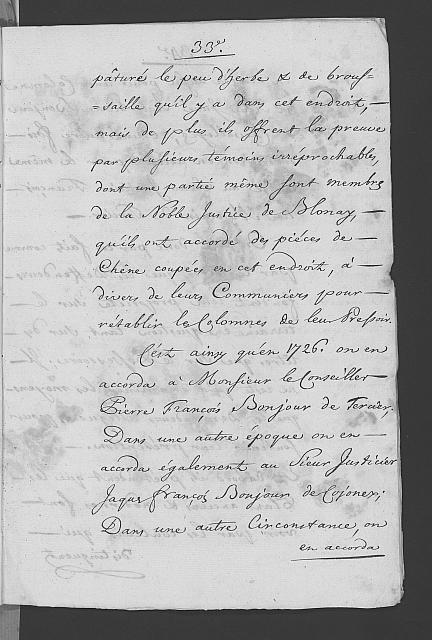 33e.
pâturé le peu d'herbe & de brous=
=saille qu'il y a dans cet endroit, —
mais de plus, ils offrent la preuve
par plusieurs témoins irréprochables,
dont une partie même sont membres
de la Noble Justice de Blonay, —
qu'ils ont accordé des pièces de —
Chêne coupées en cet endroit, à —
divers de leurs Communiers pour —
rétablir les Colomnes de leur Pressoir.
C'est ainsy qu'en 1726. on en
accorda à Monsieur le Conseiller —
Pierre François Bonjour de Tercier,
Dans une autre époque on en —
accorda également au Sieur Justicier
Jaques François Bonjour de Cojonex;
Dans une autre Circonstance, on
en accorda